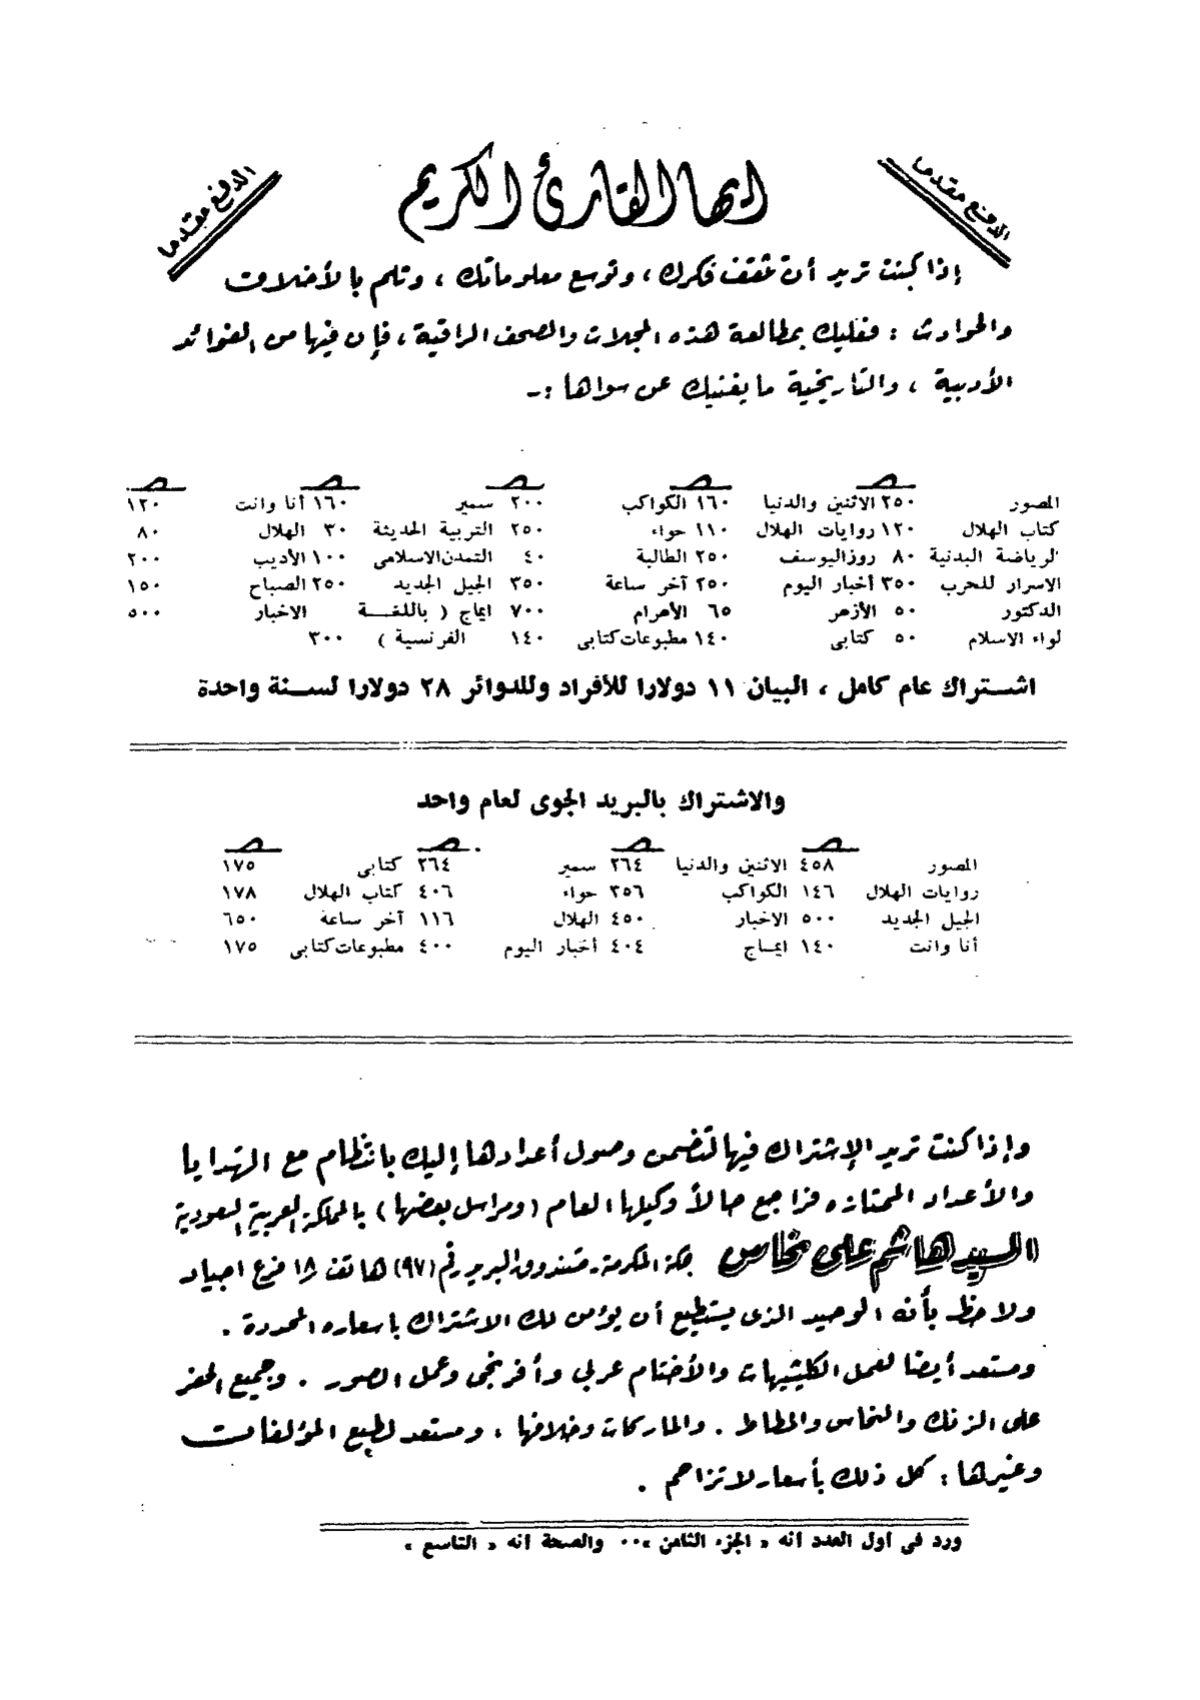 الدفع مقدما
أيها القارئ الكريم
الدفع مقدما
إذا كنت تريد أن تثقف فكرك ، وتوسع معلوماتك ، وتلم بالأخلاق
والحوادث : فعليك بمطالعة هذه المجلات والصحف الراقية ، فإن فيها من الفوائد
الأدبية ، والتاريخية ما يغنيك عن سواها :ـ
صـ صـ صـ صـ صـ
المصور ٢٥٠ الاثنين والدنيا ١٦٠ الكواكب ٢٠٠ سمير ١٦٠ أنا وانت ١٢٠
كتاب الهلال ١٢٠ روايات الهلال ١١٠ حواء ٢٥٠ التربية الحديثة ٣٠ الهلال ٨٠
الرياضة البدنية ٨٠ روز اليوسف ٢٥٠ الطالبة ٤٠ التمدن الاسلامى ١٠٠ الأديب ٢٠٠
الاسرار للحرب ٣٥٠ أخبار اليوم ٢٥٠ آخر ساعة ٣٥٠ الجيل الجديد ٢٥٠ الصباح ١٥٠
الدكتور ٥٠ الأزهر ٦٥ الأهرام ٧٠٠ ايماج ( باللغــة الاخبار ٥٠٠
لواء الاسلام ٥٠ كتابى ١٤٠ مطبوعات كتابى ١٤٠ الفرنسية ) ٣٠٠
اشــتراك عام كامل ، البيان ١١ دولارا للأفراد وللدوائر ٢٨ دولارا لســنة واحدة
والاشتراك بالبريد الجوى لعام واحد
صـ صـ صـ صـ
المصور ٤٥٨ الاثنين والدنيا ٢٦٤ سمير ٢٦٤ كتابى ١٧٥
روايات الهلال ١٤٦ الكواكب ٣٥٦ حواء ٤٠٦ كتاب الهلال ١٧٨
الجيل الجديد ٥٠٠ الاخبار ٤٥٠ الهلال ١١٦ آخر ساعة ٦٥٠
أنا وانت ١٤٠ ايمـاج ٤٠٤ أخبار اليوم ٤٠٠ مطبوعات كتابى ١٧٥
وإذا كنت تريد الإشتراك فيها لتضمن وصول أعدادها إليك بانتظام مع الهدايا
والأعداد الممتازه فراجع حالاً وكيلها العام ( ومراسل بعضها ) بالمملكة العربية السعودية
السيد هاشم على نحاس بمكة المكرمة ـ صندوق البريد رقم (٩٧) هاتف ١٨ فرع اجياد
ولاحظ بأنه الوحيد الذى يستطيع أن يؤمن لك الاشتراك باسعاره المحددة .
ومستعد أيضا لعمل الكليشيهات والأختام عربي وأفرنجى وعمل الصور . وجميع الحفر
على الزنك والنحاس والمطاط . والماركات وخلافها ، ومستعد لطبع المؤلفات
وغيرها : كل ذلك بأسعار لا تزاحم .
ورد فى أول العدد أنه « الجزء الثامن »٠٠ والصحة أنه « التاسع »